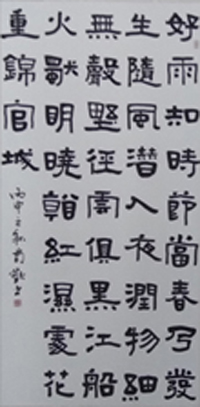 好雨知時節當春乃發
生隨風潛入夜潤物細
無聲野徑雲俱黑江船
火獨明曉看紅濕處花
重錦官城
丙申